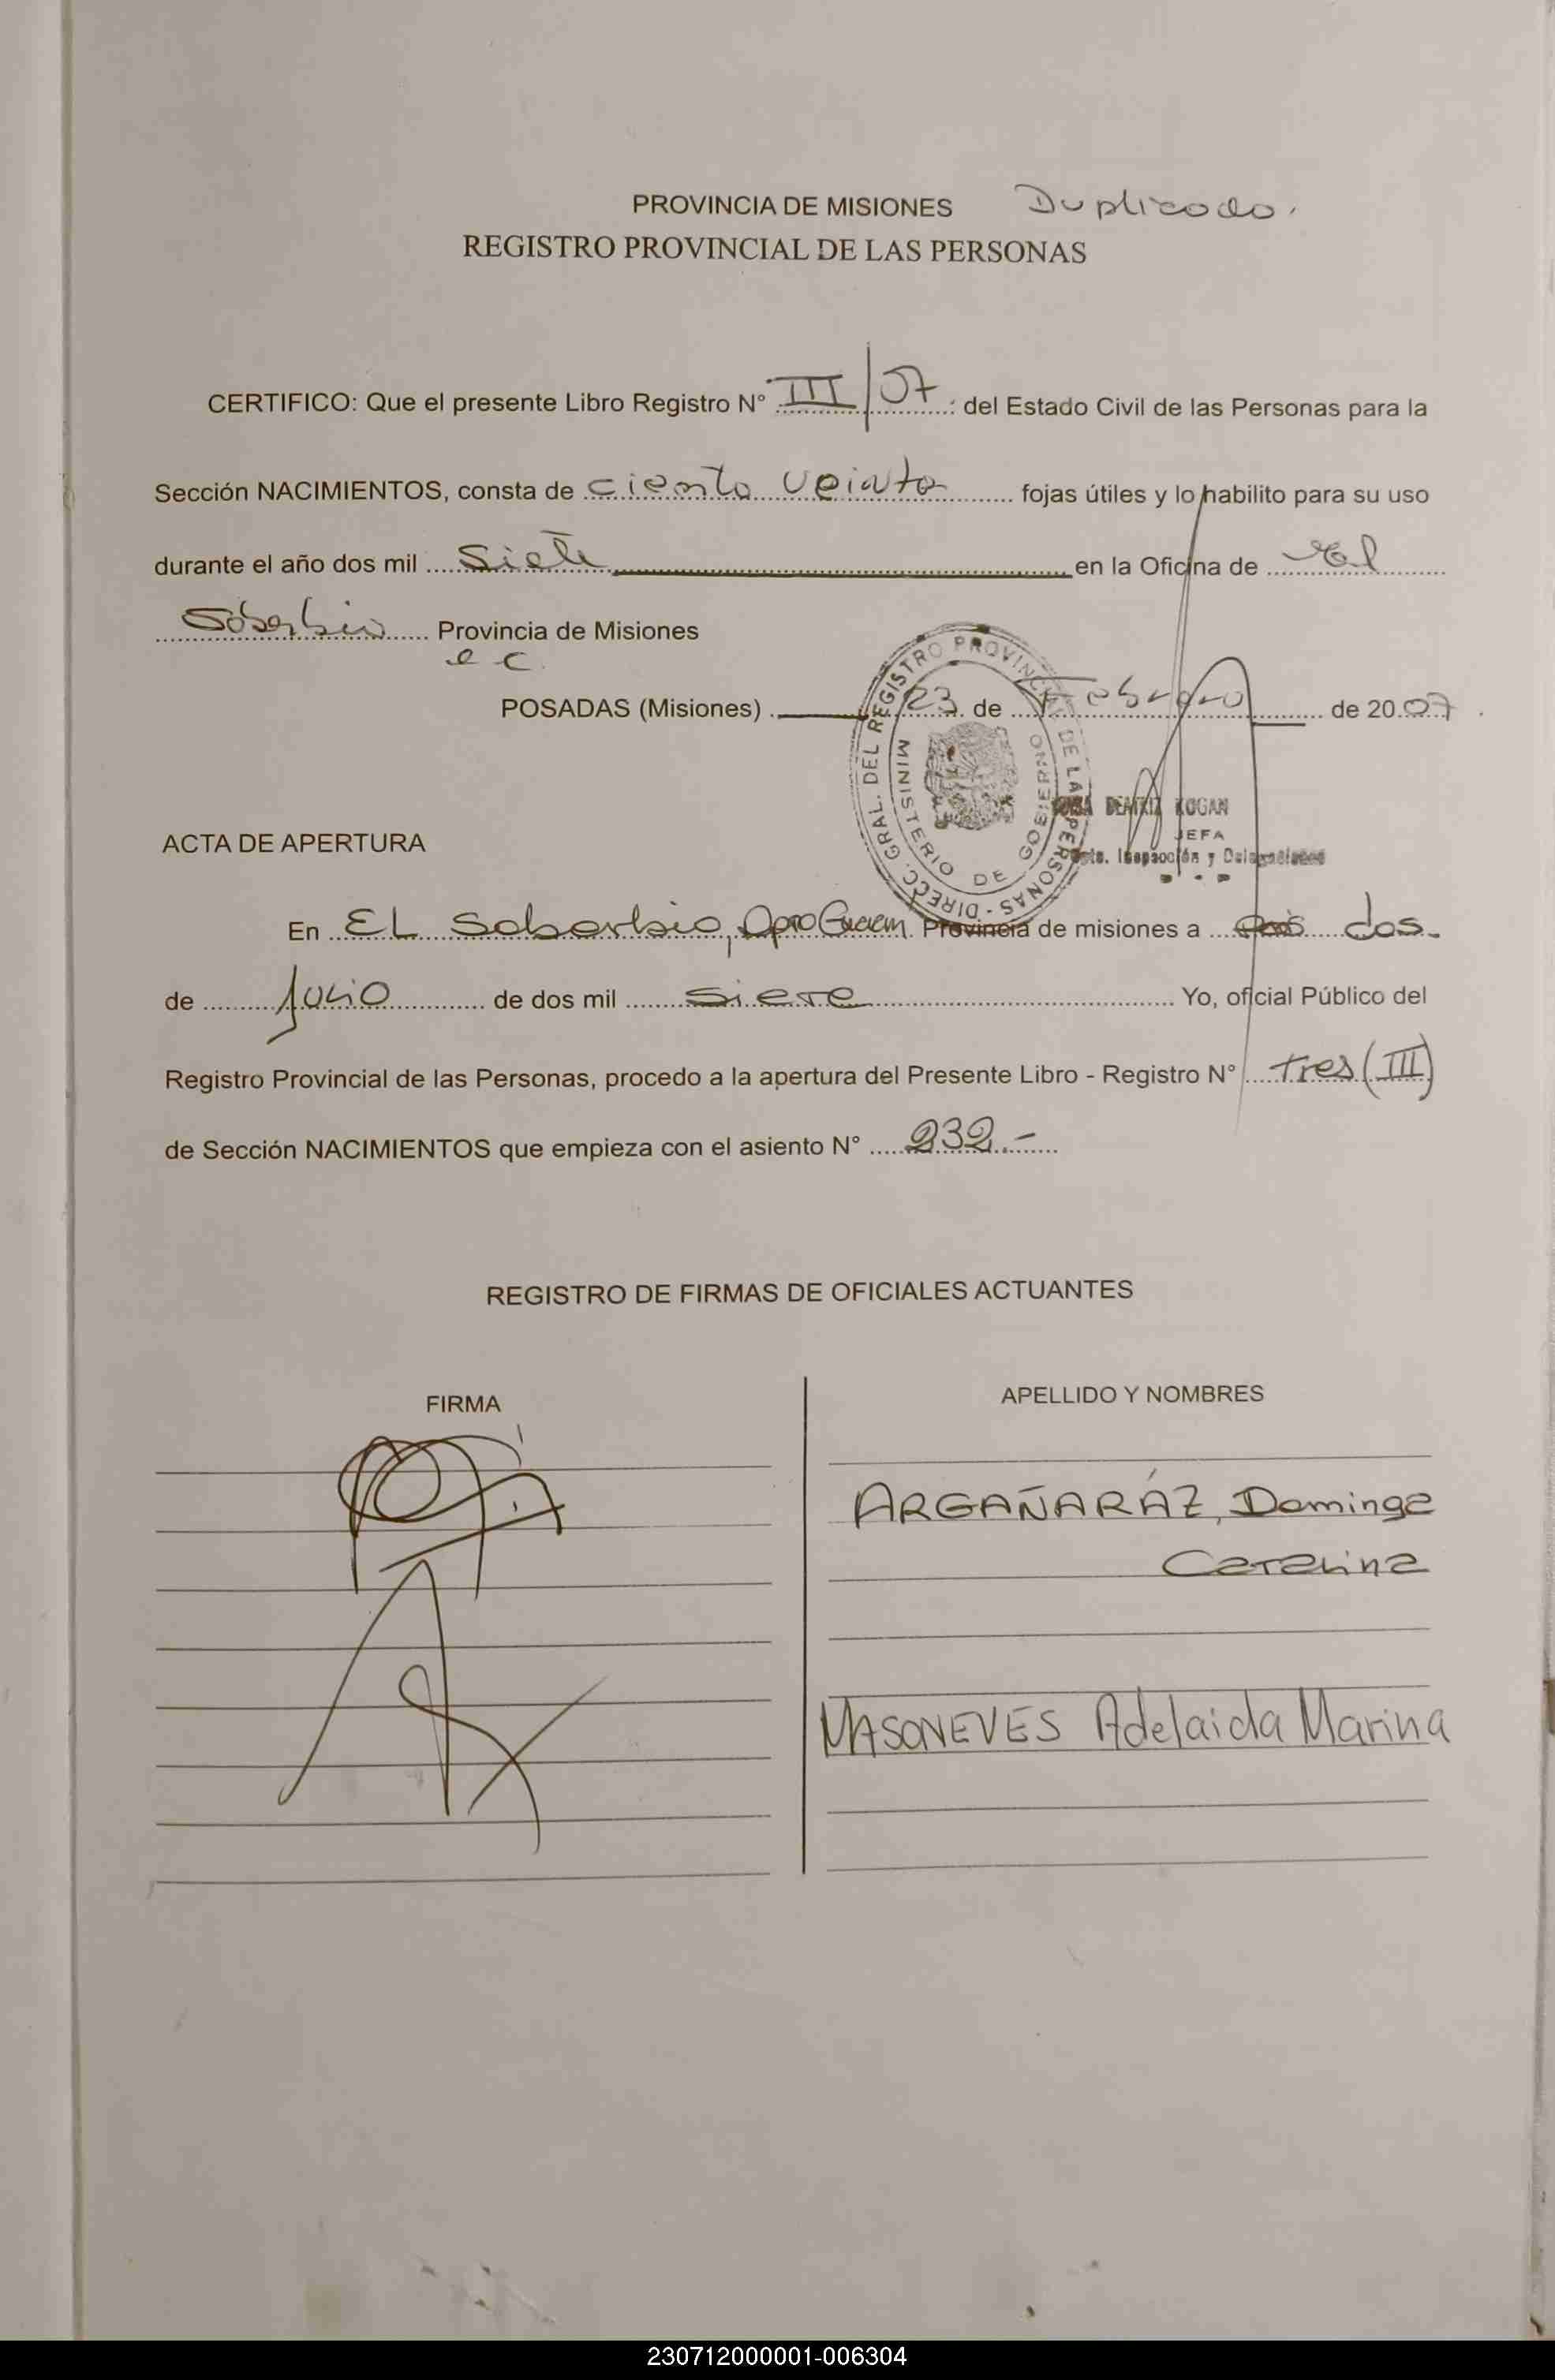 PROVINCIA DE MISIONES Duplicado.
REGISTRO PROVINCIAL DE LAS PERSONAS
CERTIFICO: Que el presente Libro Registro N° III/07 del Estado Civil de las Personas para la
Sección NACIMIENTOS, consta de ciento veinte fojas útiles y lo habilito para su uso
durante el año dos mil siete en la Oficina de El
Soberbio Provincia de Misiones
e c.
POSADAS (Misiones) 23 de Febrero de 2007.
DIRECC. GRAL. DEL REGISTRO PROVINCIAL DE LAS PERSONAS -
MINISTERIO DE GOBIERNO
BEATRIZ KOGAN
JEFA
Dpto. Inspección y Delegaciones
ACTA DE APERTURA
En EL Soberbio, Dpto Guaraní Provincia de misiones a dos
de Julio de dos mil siete Yo, oficial Público del
Registro Provincial de las Personas, procedo a la apertura del Presente Libro - Registro N° tres (III)
de Sección NACIMIENTOS que empieza con el asiento N° 232.-
REGISTRO DE FIRMAS DE OFICIALES ACTUANTES
FIRMA APELLIDO Y NOMBRES
ARGAÑARÁZ, Dominga
Catalina
MASONEVES Adelaida Marina
230712000001-006304